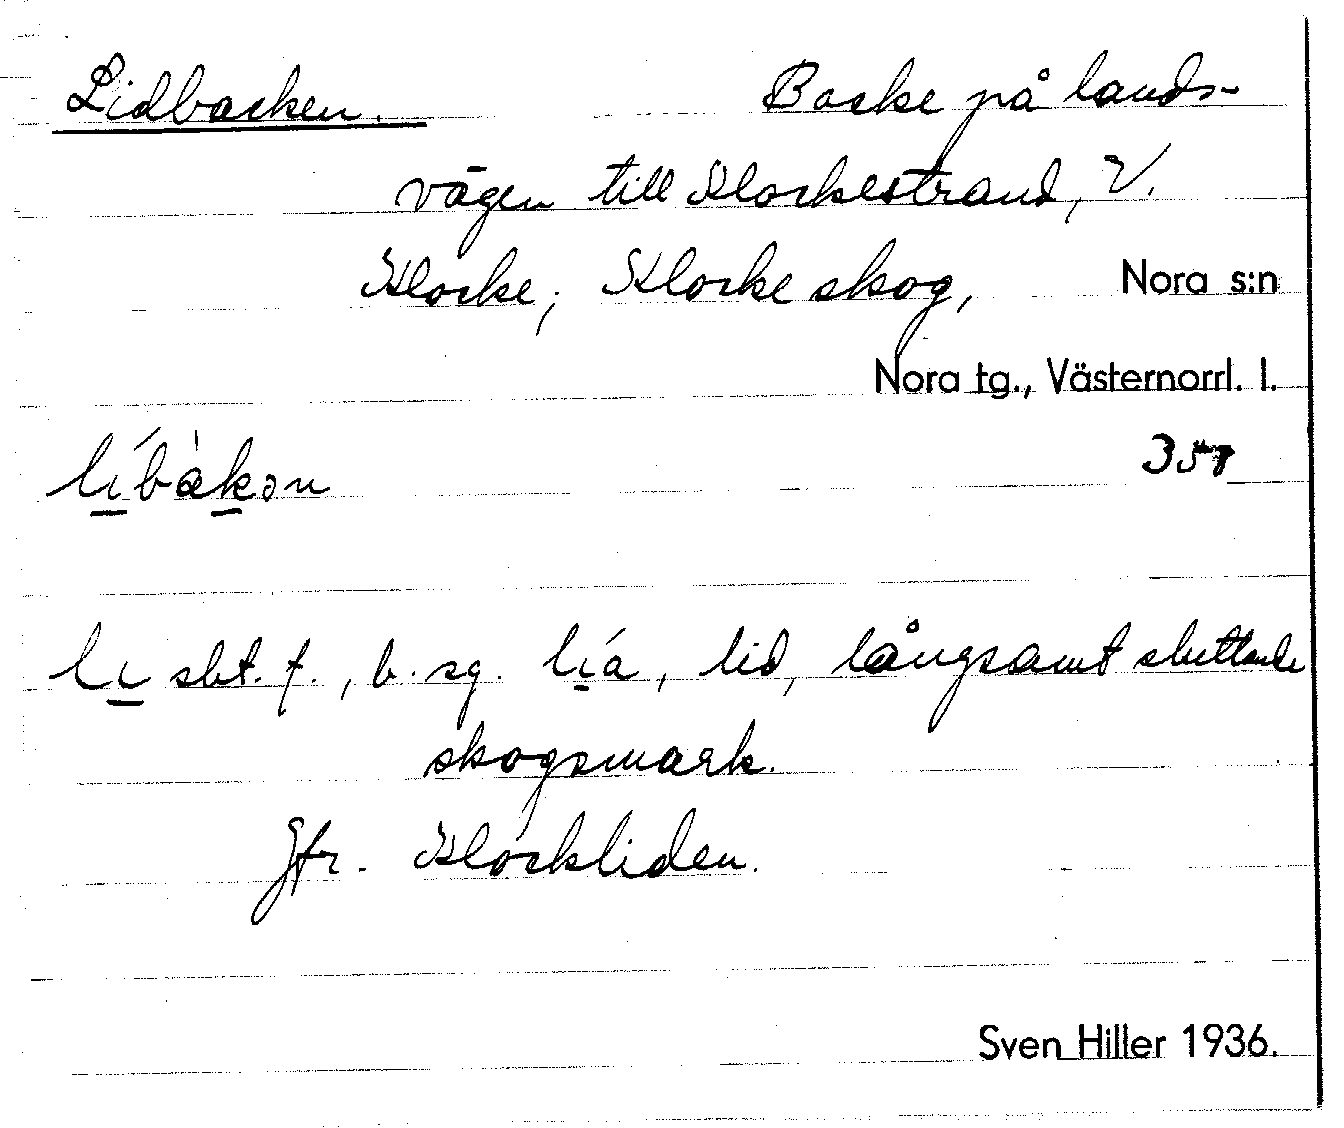 Lidbacken. Backe på lands-
vägen till Klockestrand, V.
Klocke; Klocke skog, Nora s:n
Nora tg., Västernorrl. l.
li̱bàḵən
li̱ sbt. f., b. sg. li̱a, lid, långsamt sluttande
skogsmark.
Jfr. Klockliden.
Sven Hiller 1936.